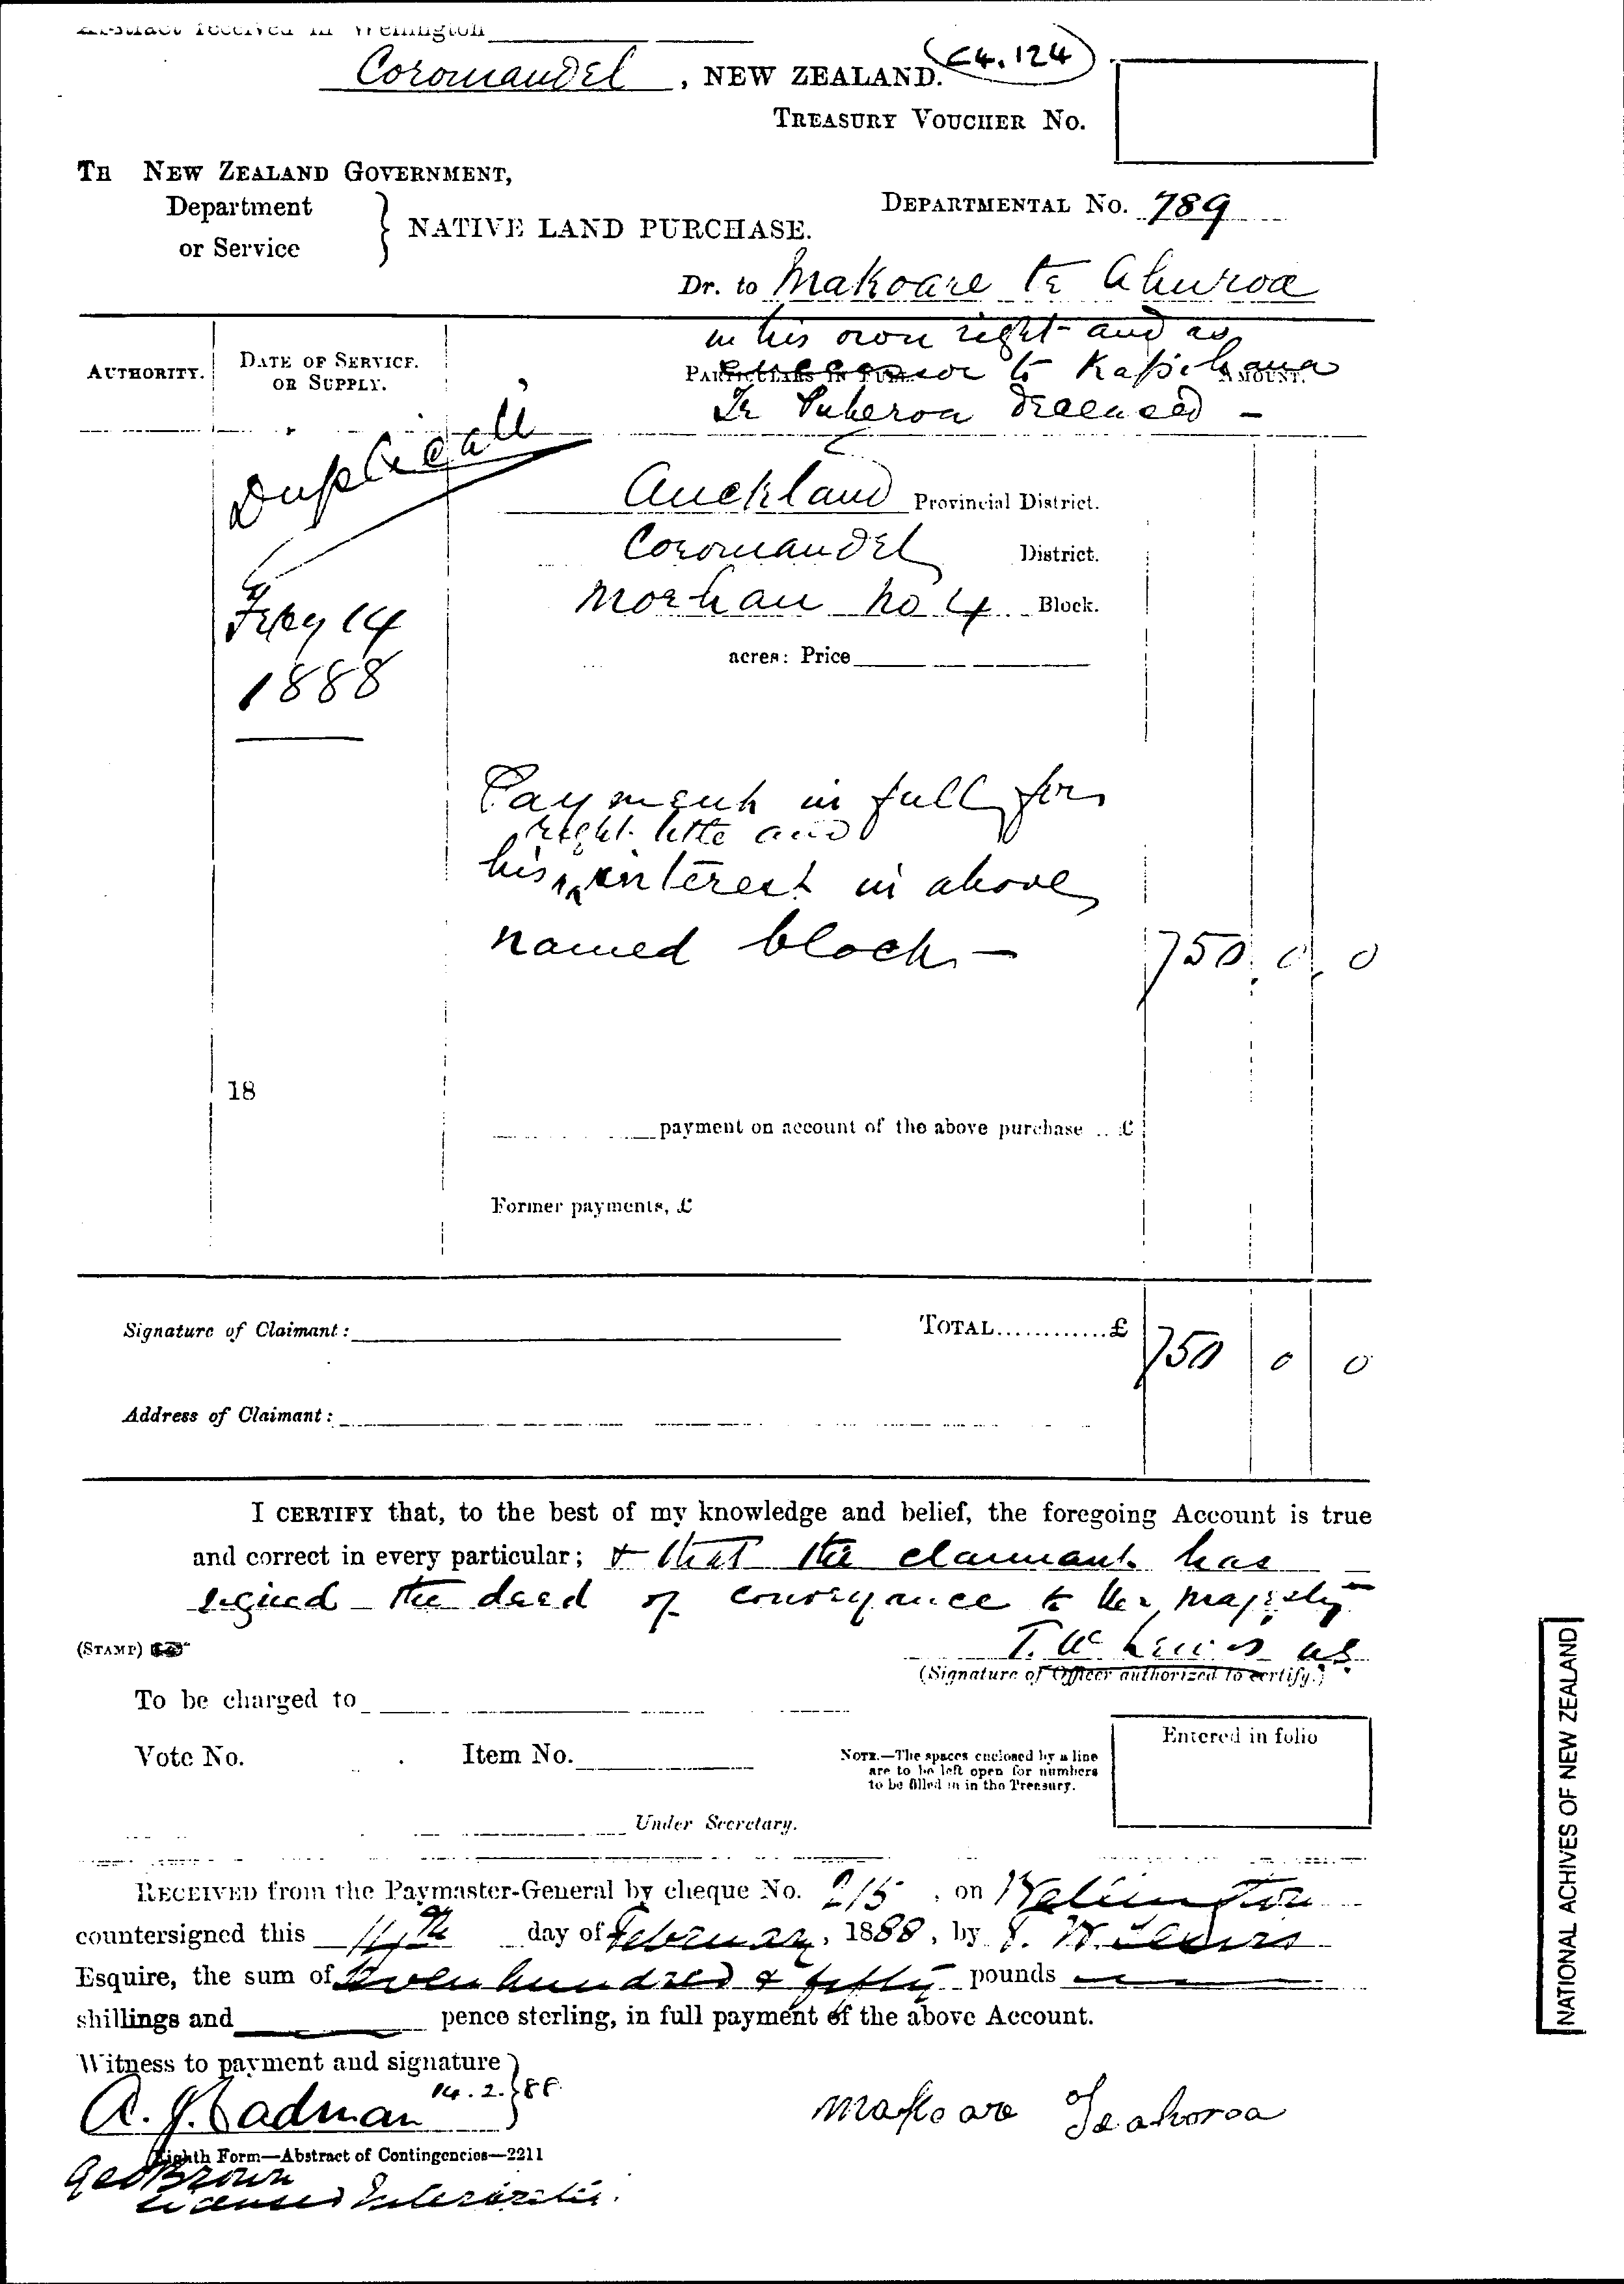 Abstract received in Wellington
C4.124
Coromandel, NEW ZEALAND.
TREASURY VOUCHER No.
TH NEW ZEALAND GOVERNMENT,
Department
or Service
NATIVE LAND PURCHASE.
DEPARTMENTAL No. 789
Dr. to Makoare te Ahuroa
in his own right and as
successor to Kapihana
Te Puheroa deceased -
AUTHORITY.
DATE OF SERVICE.
OR SUPPLY.
PARTICULARS IN FULL.
AMOUNT.
Duplicate
Auckland Provincial District.
Coromandel District.
Moehau No 4 Block.
Feby 14
1888
acres: Price
Payment in full for
right title and
his interest in above
named block - 750. 0. 0
18
payment on account of the above purchase .. £
Former payments, £
Signature of Claimant:
TOTAL............£ 750 0 0
Address of Claimant:
I CERTIFY that, to the best of my knowledge and belief, the foregoing Account is true
and correct in every particular; & that the claimant has
signed the deed of conveyance to Her Majesty
(STAMP)
T. W. Lewis US
(Signature of Officer authorized to certify.)
To be charged to
Vote No. Item No.
NOTE.—The spaces enclosed by a line
are to be left open for numbers
to be filled in in the Treasury.
Entered in folio
Under Secretary.
RECEIVED from the Paymaster-General by cheque No. 215, on Wellington
countersigned this 14th day of February, 1888, by T. W. Lewis
Esquire, the sum of Seven hundred & fifty pounds
shillings and pence sterling, in full payment of the above Account.
Witness to payment and signature
14.2.88.
A. J. Cadman
Makoare Teahoroa
Eighth Form—Abstract of Contingencies—2211
Geo Brown
Licensed Interpreter.
NATIONAL ACHIVES OF NEW ZEALAND